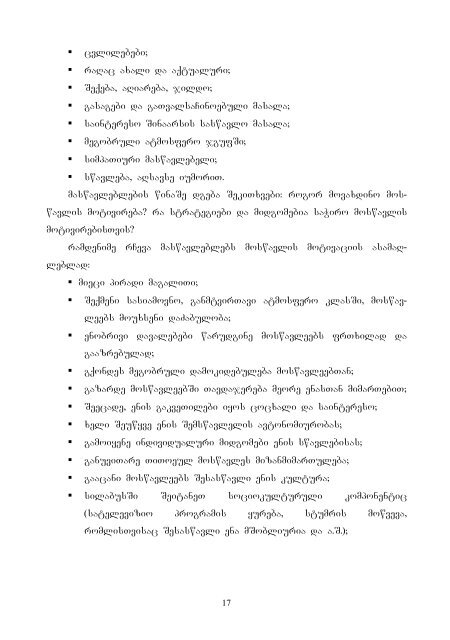 ▪ ცვლილებები;
▪ რაღაც ახალი და აქტუალური;
▪ შექება, აღიარება, ჯილდო;
▪ გასაგები და გათვალსაჩინოებული მასალა;
▪ საინტერესო შინაარსის სასწავლო მასალა;
▪ მეგობრული ატმოსფერო ჯგუფში;
▪ სიმპათიური მასწავლებელი;
▪ სწავლება, აღსავსე იუმორით.
მასწავლებლების წინაშე დგება შეკითხვები: როგორ მოვახდინო მოს-
წავლის მოტივირება? რა სტრატეგიები და მიდგომებია საჭირო მოსწავლის
მოტივირებისთვის?
რამდენიმე რჩევა მასწავლებლებს მოსწავლის მოტივაციის ასამაღ-
ლებლად:
▪ მიეცი პირადი მაგალითი;
▪ შექმენი სასიამოვნო, განმტვირთავი ატმოსფერო კლასში, მოსწავ-
ლეებს მოუხსენი დაძაბულობა;
▪ ენობრივი დავალებები წარუდგინე მოსწავლეებს ფრთხილად და
გააზრებულად;
▪ გქონდეს მეგობრული დამოკიდებულება მოსწავლეებთან;
▪ გაზარდე მოსწავლეებში თავდაჯერება მეორე ენასთან მიმართებით;
▪ შეეცადე, ენის გაკვეთილები იყოს ცოცხალი და საინტერესო;
▪ ხელი შეუწყვე ენის შემსწავლელის ავტონომიურობას;
▪ გამოიყენე ინდივიდუალური მიდგომები ენის სწავლებისას;
▪ განუვითარე თითოეულ მოსწავლეს მიზანმიმართულება;
▪ გააცანი მოსწავლეებს შესასწავლი ენის კულტურა;
▪ სილაბუსში შეიტანეთ სოციოკულტურული კომპონენტიც
(სატელევიზიო პროგრამის ყურება, სტუმრის მოწვევა,
რომლისთვისაც შესასწავლი ენა მშობლიურია და ა.შ.);
17